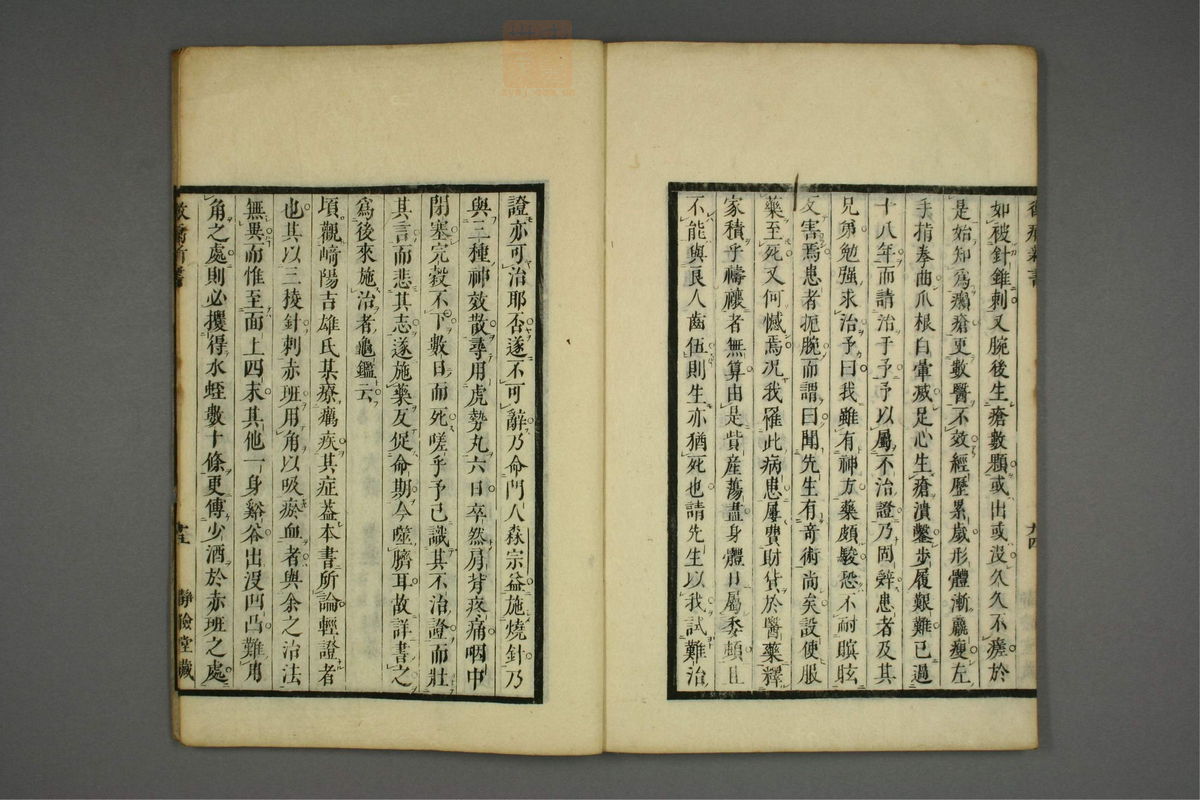 如被針錐刺又腕後生瘡數顆或出或沒久久不瘥於
是始知為癩瘡更數醫不效經歷累歲形體漸羸瘦左
手指拳曲爪根白暈滅足心生瘡潰鑿步履艱難已過
十八年而請治于予予以屬不治證乃固辭患者及其
兄弟勉强求治予曰我雖有神方藥頗駿恐不耐瞑眩
反害焉患者扼腕而謂曰聞先生有奇術尚矣設使服
藥至死又何憾焉况我罹此病患屢費財貨於醫藥釋
家積乎禱禳者無算由是貲産蕩盡身體日屬委頓且
不能與良人齒伍則生亦猶死也請先生以我試難治
十四
證亦可治耶否遂不可辭乃命門人森宗益施燒針乃
與三種神效散尋用虎勢丸六日卒然肩背疼痛咽中
閉塞完穀不下數日而死嗟乎予已識其不治證而壯
其言而悲其志遂施藥反促命期今噬臍耳故詳書之
為後來施治者龜鑑云
頃觀﨑陽吉雄氏某療癘疾其症蓋本書所論輕證者
也其以三棱針刺赤班用角以吸瘀血者與余之治法
無異而惟至面上四末其他一身谿谷出没凹凸難用
角之處則必攫得水蛭數十條更傅少酒於赤班之處
靜儉堂藏